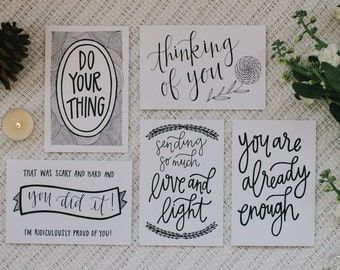 DO
YOUR
THING
thinking
of you
THAT WAS SCARY AND HARD AND
you did it!
I'M RIDICULOUSLY PROUD OF YOU!
sending
so much
love and
light
you are
already
enough